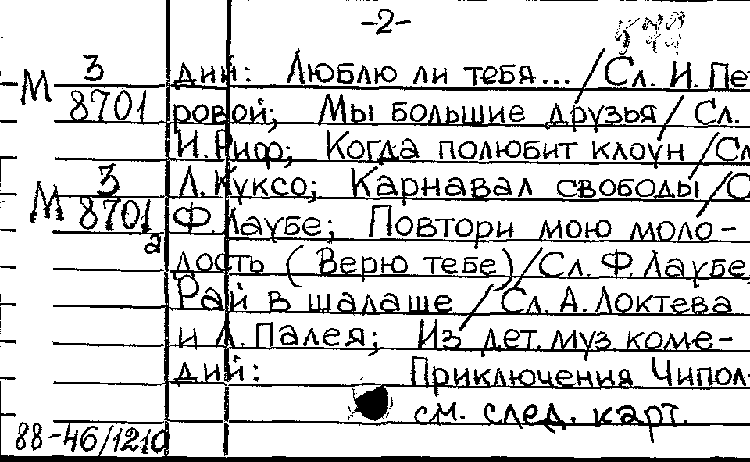 -2-
дий: Люблю ли тебя.../Сл. И. Пе
М 3 8701 ровой; Мы большие друзья/ Сл.
И. Риф; Когда полюбит клоун /Сл
М 3 8701 а Л. Куксо; Карнавал свободы/С
Ф. Лаубе; Повтори мою моло-
дость (Верю тебе)/Сл. Ф. Лаубе,
Рай в шалаше /Сл. А. Локтева
и Л. Палея; Из дет. муз. коме-
дий: Приключения Чипол-
см. след. карт.
88-46/1210